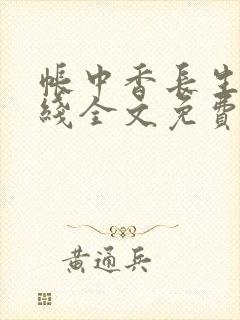 帳中香長生
綫全文免費
黃通兵